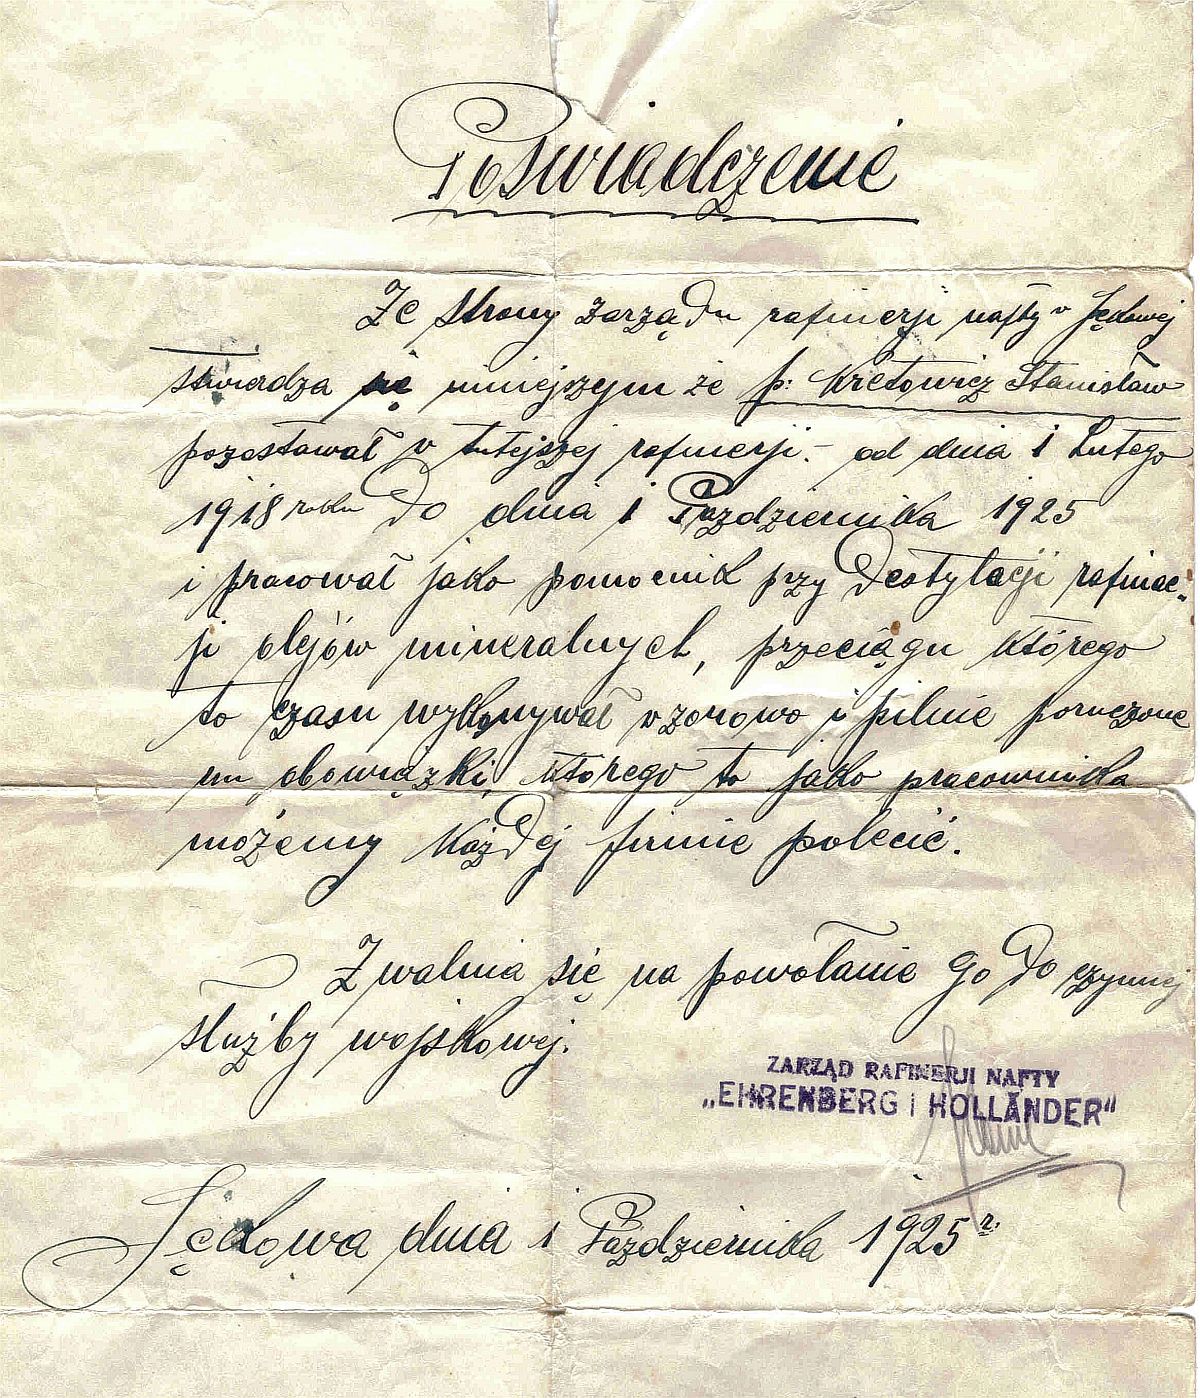 Poświadczenie
Ze strony zarządu rafinerji nafty w Sękowej
stwierdza się niniejszym że p: Kretowicz Stanisław
pozostawał w tutejszej rafinerji. – od dnia 1 Lutego
1918 roku do dnia 1 Października 1925
i pracował jako pomocnik przy Destylacji rafinac-
ji olejów mineralnych, przeciągu którego
to czasu wykonywał wzorowo i pilnie poruczone
mu obowiązki, którego to jako pracownika
możemy każdej firmie polecić.
Zwalnia się na powołanie go do czynnej
służby wojskowej.
ZARZĄD RAFINERJI NAFTY
„EHRENBERG i HOLLÄNDER"
Sękowa dnia 1 Października 1925 r.